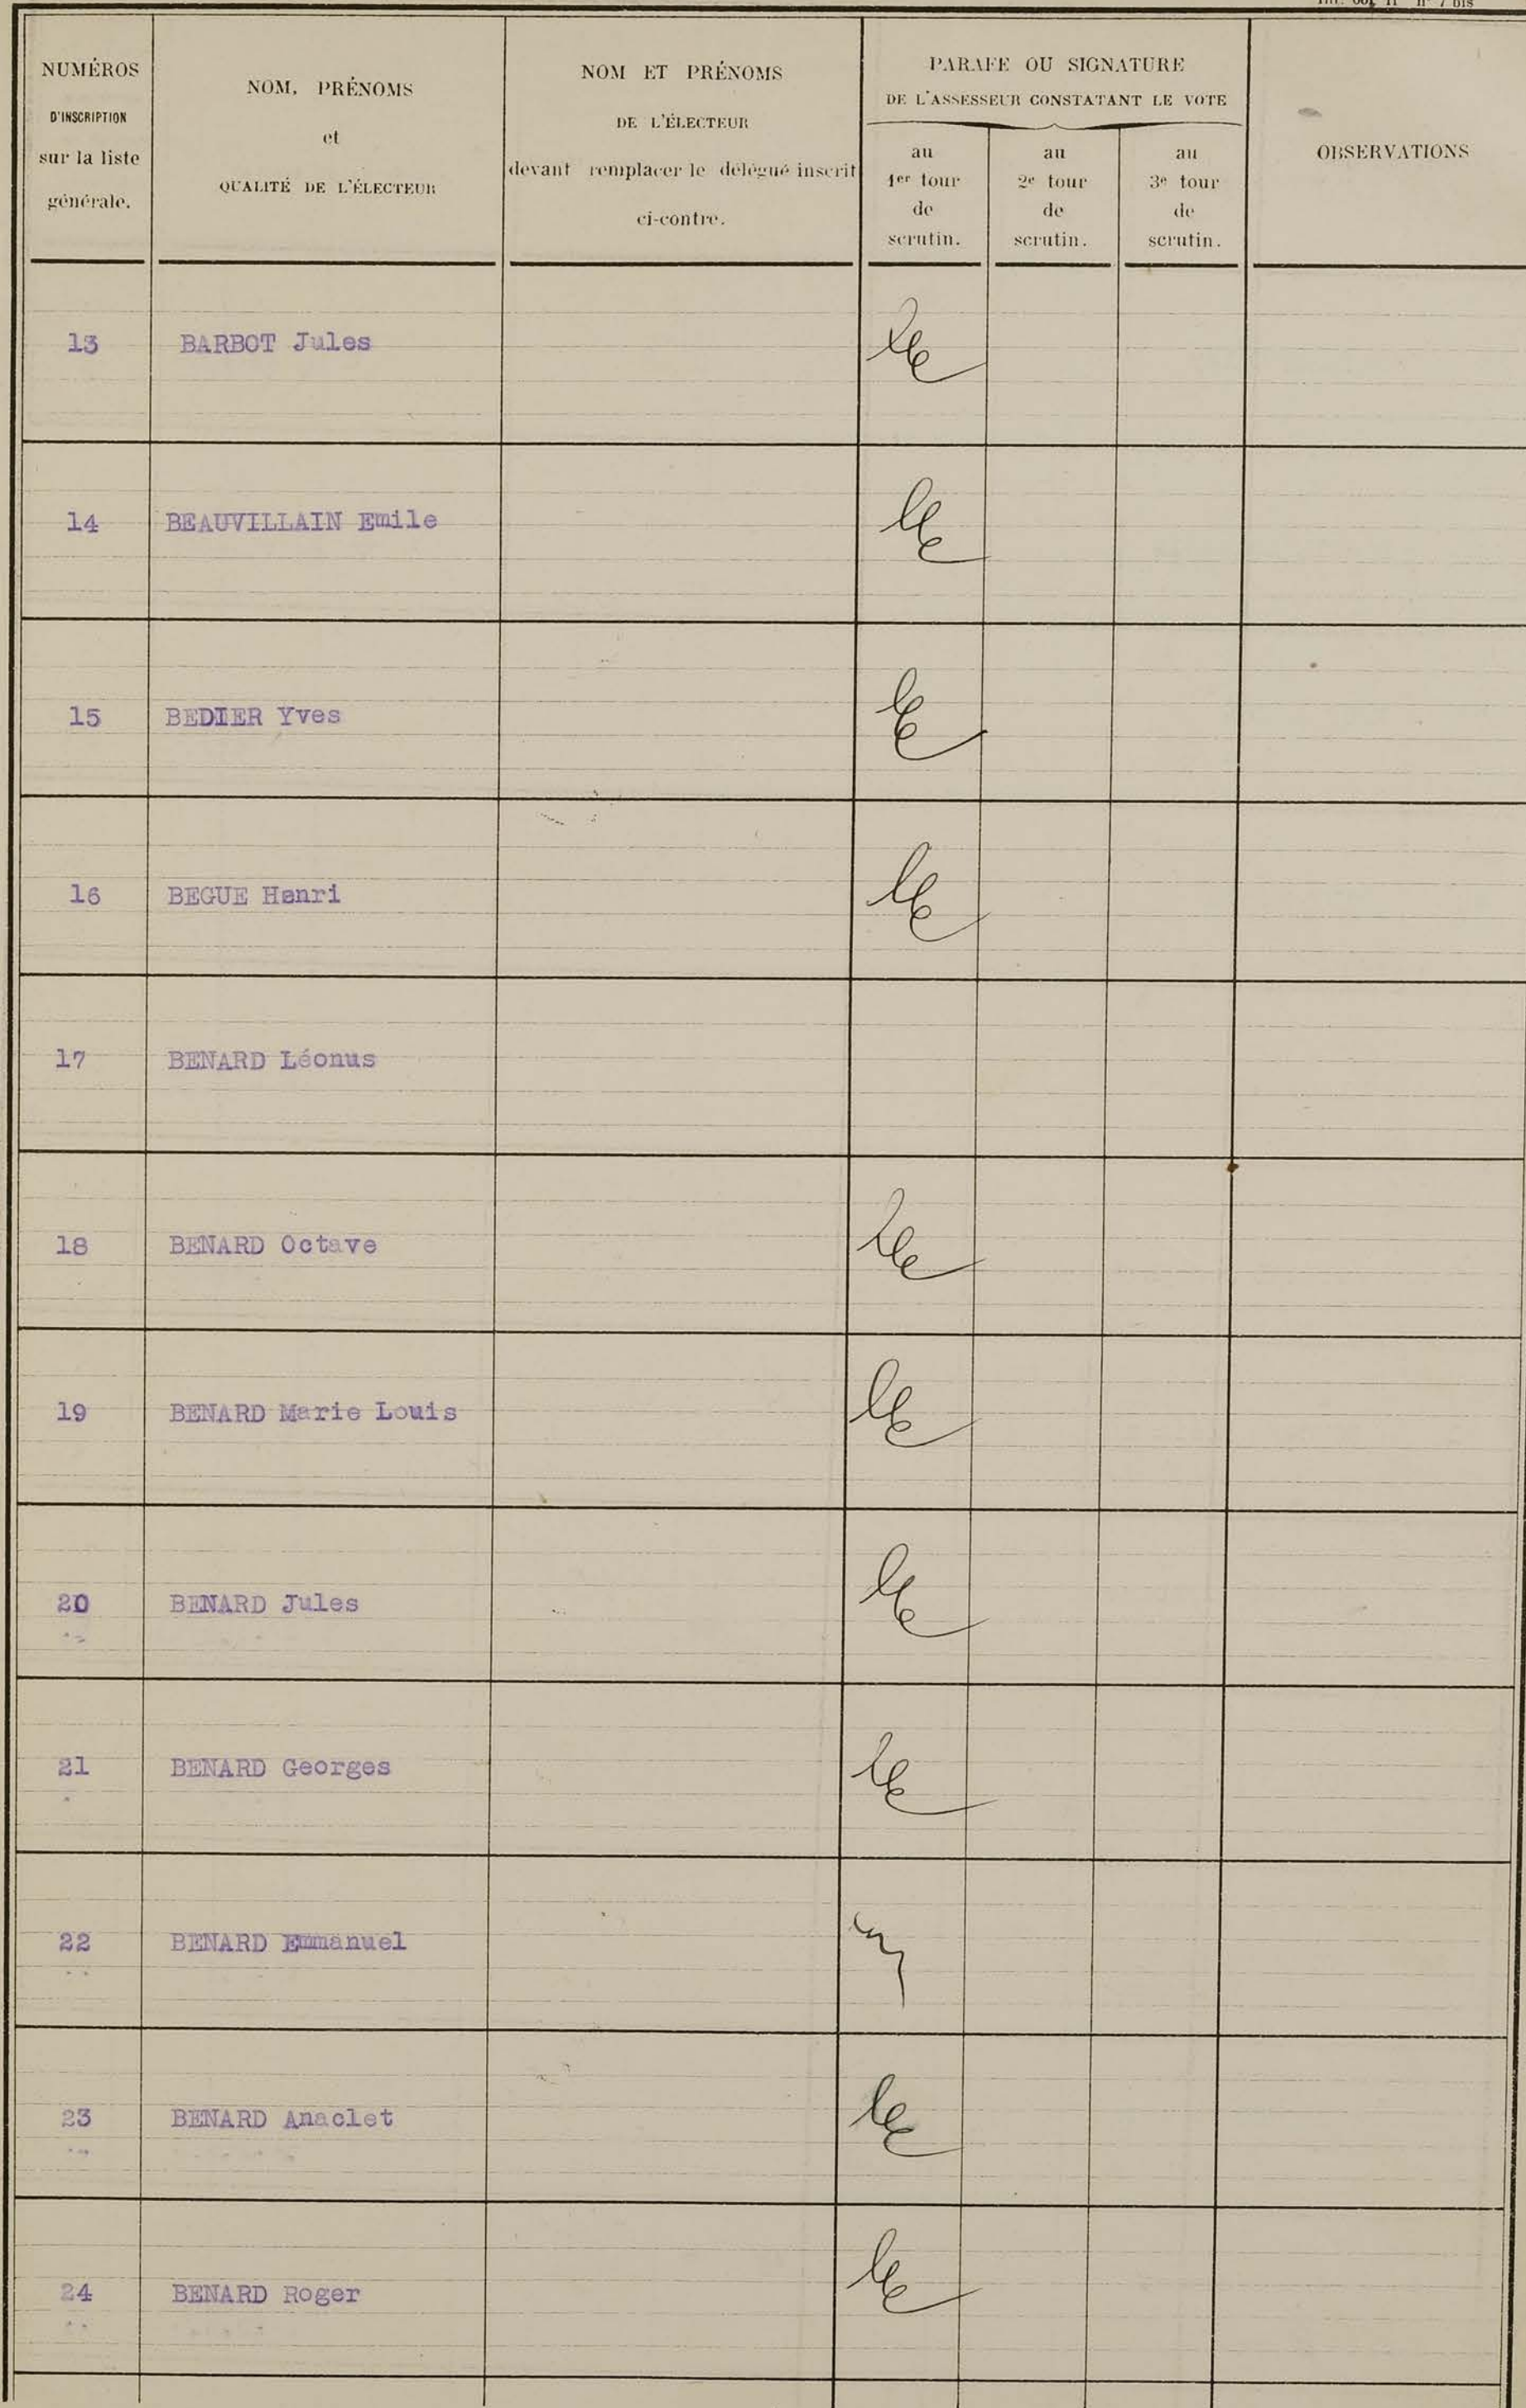 NUMÉROS
D'INSCRIPTION
sur la liste
générale.
NOM, PRÉNOMS
et
QUALITÉ DE L'ÉLECTEUR
NOM ET PRÉNOMS
DE L'ÉLECTEUR
devant remplacer le délégué inscrit
ci-contre.
PARAFE OU SIGNATURE
DE L'ASSESSEUR CONSTATANT LE VOTE
au
1er tour
de
scrutin.
au
2e tour
de
scrutin.
au
3e tour
de
scrutin.
OBSERVATIONS
13 BARBOT Jules
14 BEAUVILLAIN Emile
15 BEDIER Yves
16 BEGUE Henri
17 BENARD Léonus
18 BENARD Octave
19 BENARD Marie Louis
20 BENARD Jules
21 BENARD Georges
22 BENARD Emmanuel
23 BENARD Anaclet
24 BENARD Roger